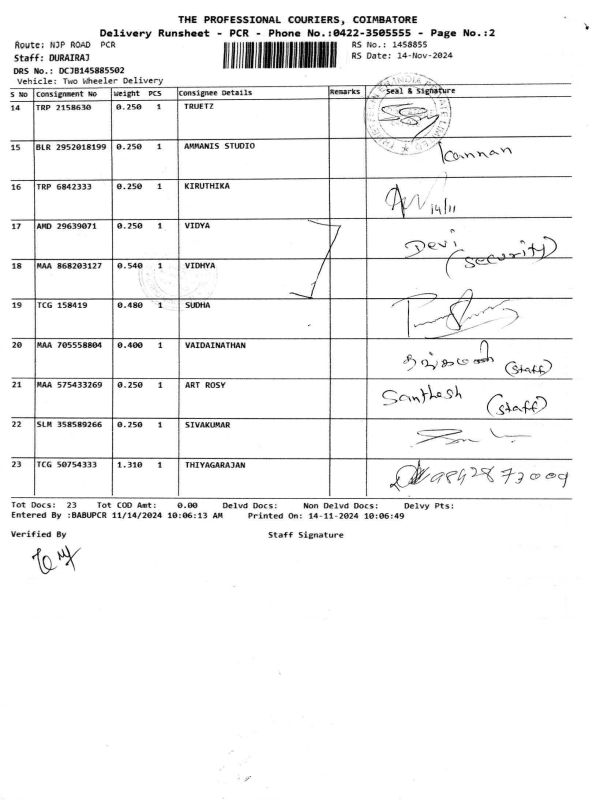 THE PROFESSIONAL COURIERS, COIMBATORE
Delivery Runsheet - PCR - Phone No.:0422-3505555 - Page No.:2
Route: NJP ROAD PCR
RS No.: 1458855
Staff: DURAIRAJ
RS Date: 14-Nov-2024
DRS No.: DCJB145885502
Vehicle: Two Wheeler Delivery
S No Consignment No Weight PCS Consignee Details Remarks Seal & Signature
14 TRP 2158630 0.250 1 TRUETZ
15 BLR 2952018199 0.250 1 AMMANIS STUDIO Kannan
16 TRP 6842333 0.250 1 KIRUTHIKA 14/11
17 AMD 29639071 0.250 1 VIDYA Devi
(Security)
18 MAA 868203127 0.540 1 VIDHYA
19 TCG 158419 0.480 1 SUDHA
20 MAA 705558804 0.400 1 VAIDAINATHAN (Staff)
21 MAA 575433269 0.250 1 ART ROSY Santhesh (Staff)
22 SLM 358589266 0.250 1 SIVAKUMAR
23 TCG 50754333 1.310 1 THIYAGARAJAN 9842873009
Tot Docs: 23 Tot COD Amt: 0.00 Delvd Docs: Non Delvd Docs: Delvy Pts:
Entered By :BABUPCR 11/14/2024 10:06:13 AM Printed On: 14-11-2024 10:06:49
Verified By Staff Signature